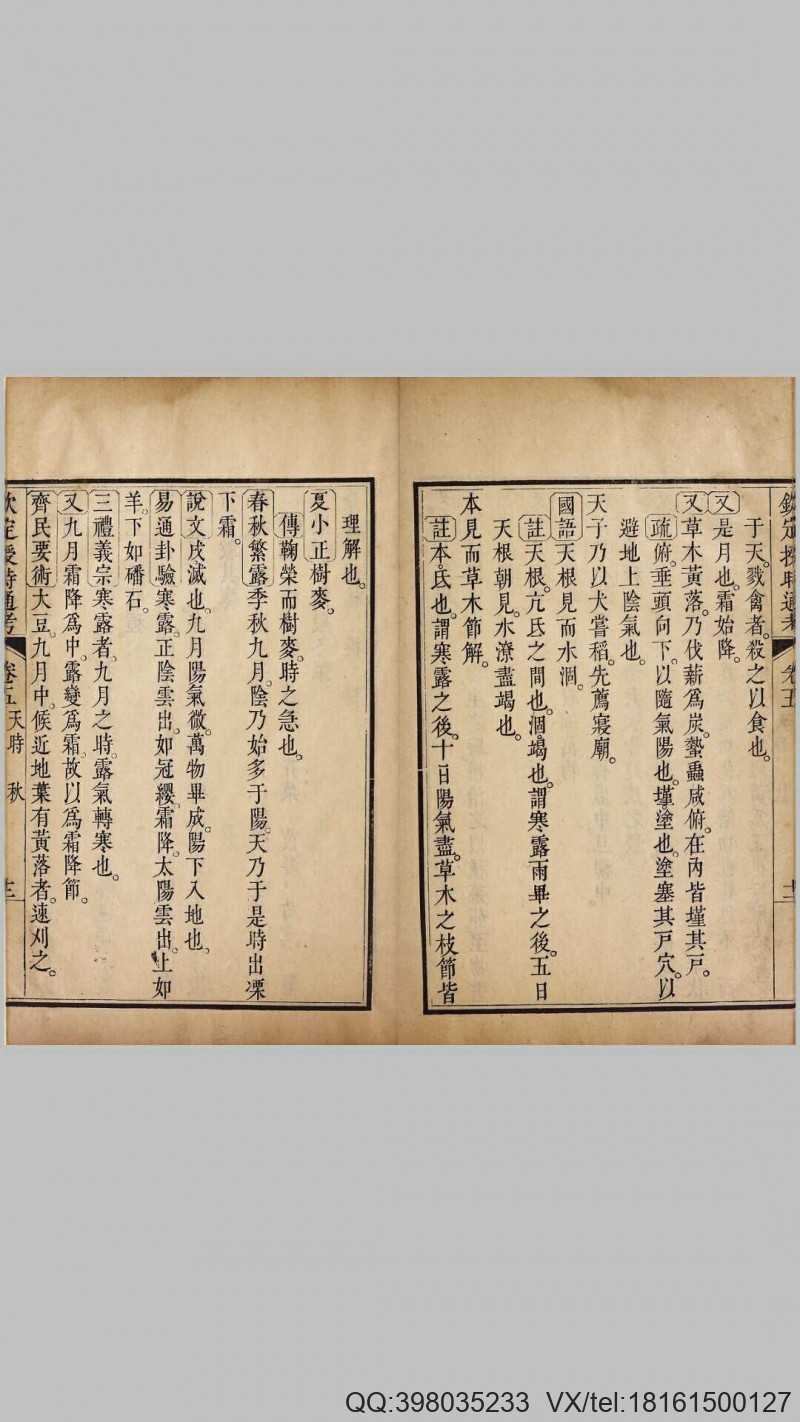 欽定授時通考 卷五
于天。戮禽者。殺之以食也。
又是月也。霜始降。
又草木黃落。乃伐薪爲炭。蟄蟲咸俯。在內皆墐其戶。
疏俯。垂頭向下。以隨氣陽也。墐。塗也。塗塞其戶穴。以
避地上陰氣也。
天子乃以犬嘗稻。先薦寢廟。
國語天根見而水涸。
註天根。亢氐之間也。涸。竭也。謂寒露雨畢之後。五日
天根朝見。水潦盡竭也。
本見而草木節解。
註本。氐也。謂寒露之後。十日陽氣盡。草木之枝節皆
理解也。
夏小正樹麥。
傳鞠榮而樹麥。時之急也。
春秋繁露季秋九月。陰乃始多于陽。天乃于是時出溧
下霜。
說文戌滅也。九月陽氣微。萬物畢成。陽下入地也。
易通卦驗寒露。正陰雲出。如冠纓。霜降。太陽雲出。上如
羊。下如磻石。
三禮義宗寒露者。九月之時。露氣轉寒也。
又九月霜降爲中。露變爲霜。故以爲霜降節。
齊民要術大豆。九月中。候近地葉有黃落者。速刈之。
欽定授時通考 卷五天時 秋
QQ:398035233 VX/tel:18161500127